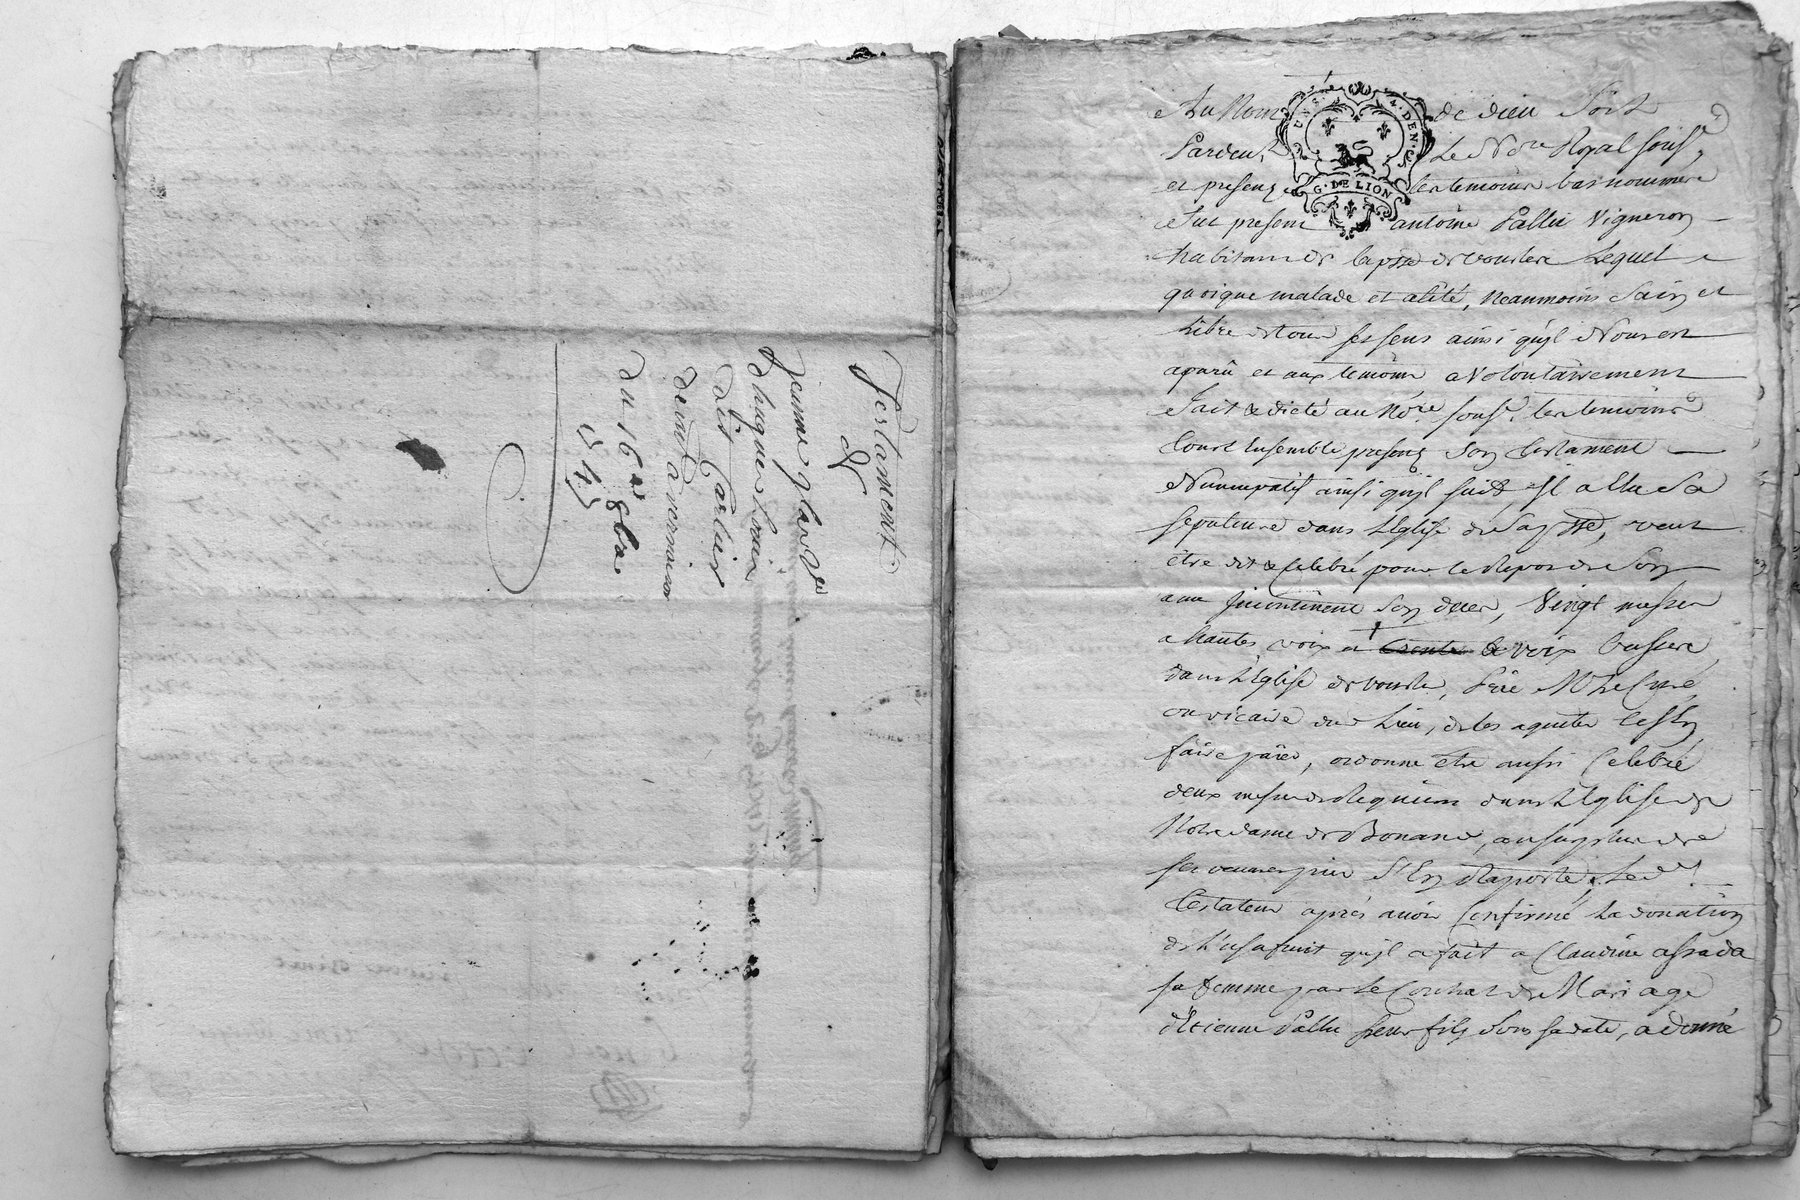 Testament
de
jeanne
hugues
dit Carlus
du 16e 8bre
G. DE LION
Au Nom de dieu Soit
Pardevt Le Nore Royal souse
et presens les temoins bas nommes
Fut present antoine Pallu Vigneron
habitant de la psse de vourles Lequel
quoique malade et alité, neanmoins Sain et
Libre de tous ses sens ainsi qu'yl Nous est
aparû et aux temoins a volontairement
Fait & dicté au Nore souse les temoins
tous Ensemble presens Son testament
Nuncupatif ainsi qu'yl suit Il a Elu Sa
sepulture dans L'Eglise de Sa psse, veut
être dit & Celebré pour le Repos de Son
ame Incontinent Son deces, Vingt messes
a hautes voix et trente de voix basses
dans L'Eglise de vourles, Prie Mr Le Curé
ou vicaire du Lieu, de les aquiter
faire faire, ordonne Etre aussi Celebré
deux messes de Requiem dans L'Eglise de
Notre dame de Bonand, au surplus de
ses oeuvres pies S'En Raporte, Ledt
Testateur après avoir Confirmé La donation
de L'usufruit qu'yl a fait a Claudine assada
sa femme par Le Contrat de Mariage
d'Etienne Pallu Leur fils Sous sa date, a donné